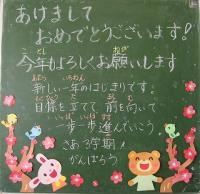 あけまして
おめでとうございます!
今年もよろしくお願いします
新しい一年のはじまりです。
目標を立てて 前を向いて
一歩一歩進んでいこう
さあ3学期!
がんばろう